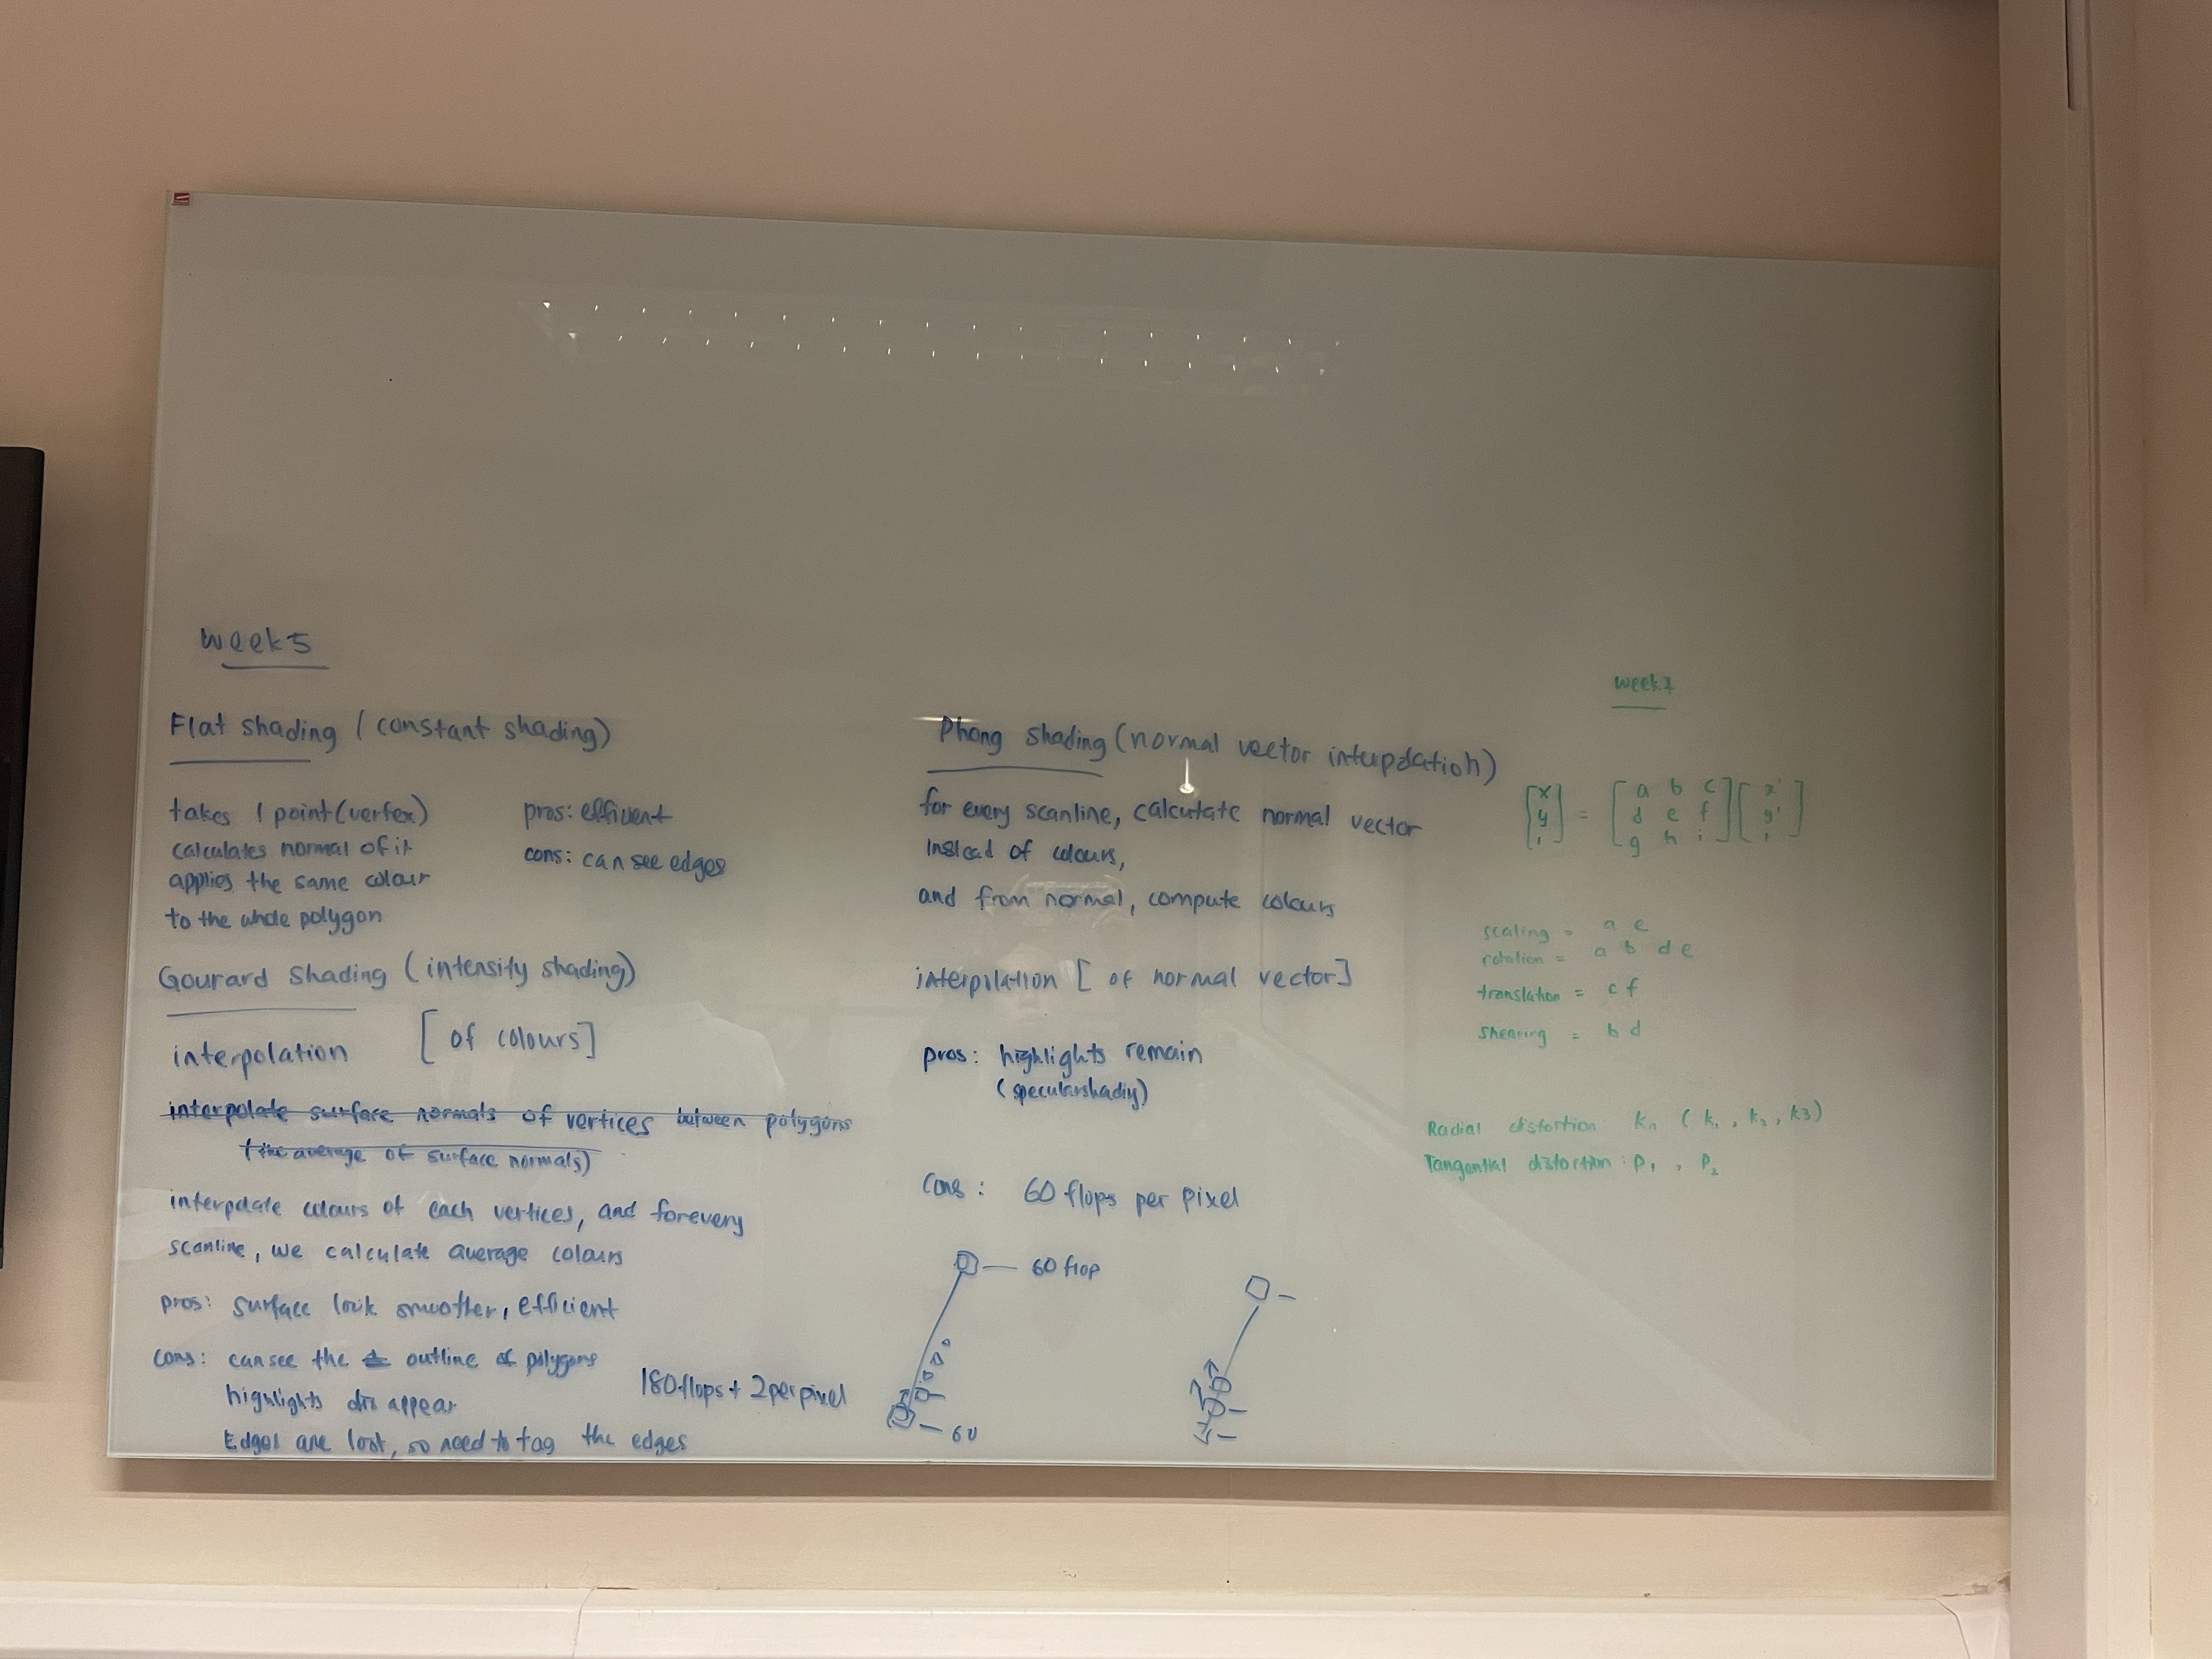 Week 5
Flat shading (constant shading)
takes 1 point (vertex)
calculates normal of it
applies the same colour
to the whole polygon
pros: efficent
cons: can see edges
Gourard shading (intensity shading)
interpolation [of colours]
interpolate surface normals of vertices between polygons
(the average of surface normals)
interpolate colours of each vertices, and for every
scanline, we calculate average colours
pros: surface look smoother, efficient
cons: can see the outline of polygons
highlights disappear
Edges are lost, so need to tag the edges
180 flops + 2 per pixel
Phong shading (normal vector interpolation)
for every scanline, calculate normal vector
instead of colours,
and from normal, compute colours
interpolation [of normal vector]
pros: highlights remain
(specular shading)
cons: 60 flops per pixel
60 flop
60
week 7
[x y 1] = [a b c d e f g h i] [x' y' 1]
scaling = a e
rotation = a b d e
translation = c f
shearing = b d
Radial distortion kn (k1, k2, k3)
Tangential distortion: P1, P2